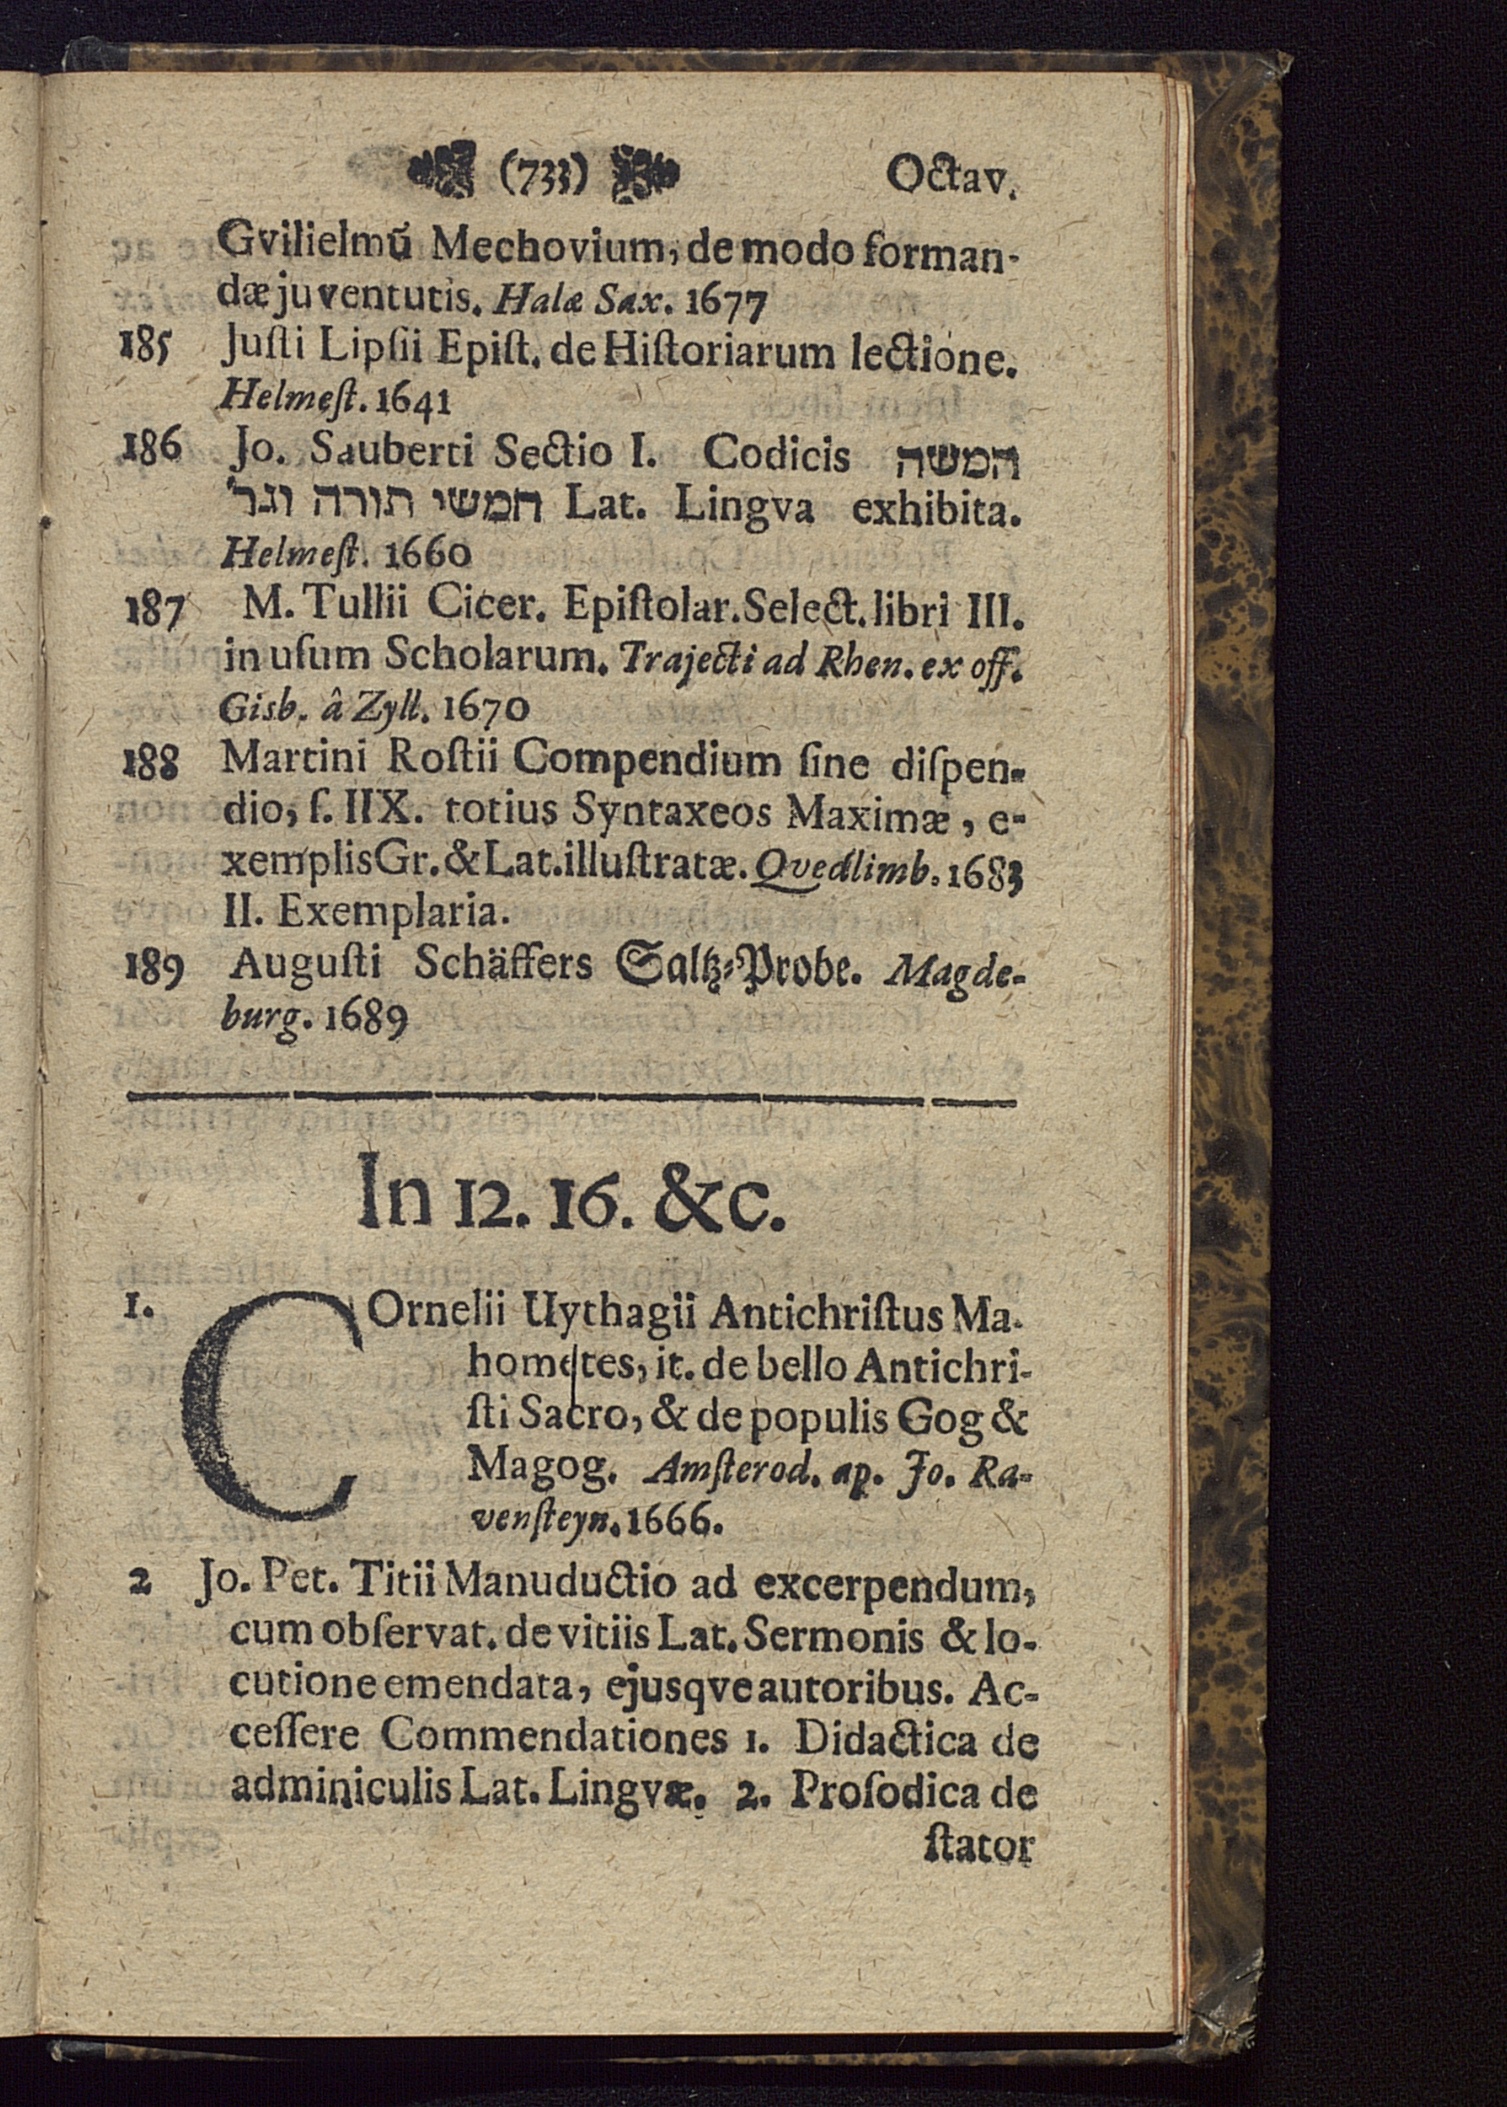 (733) Octav.
Gvilielmū Mechovium, de modo forman-
dæ juventutis. Halæ Sax. 1677
185 Juſti Lipſii Epiſt. de Hiſtoriarum lectione.
Helmeſt. 1641
186 Jo. Sauberti Sectio I. Codicis המשה
חמשי תורה וגר' Lat. Lingva exhibita.
Helmeſt. 1660
187 M. Tullii Cicer. Epiſtolar. Select. libri III.
in uſum Scholarum. Trajecti ad Rhen. ex off.
Gisb. â Zyll. 1670
188 Martini Roſtii Compendium ſine diſpen-
dio, ſ. IIX. totius Syntaxeos Maximæ, e-
xemplis Gr. & Lat. illuſtratæ. Qvedlimb. 1683
II. Exemplaria.
189 Auguſti Schäffers Saltz-Probe. Magde-
burg. 1689
In 12. 16. &c.
1. COrnelii Uythagii Antichriſtus Ma-
hometes, it. de bello Antichri-
ſti Sacro, & de populis Gog &
Magog. Amſterod. ap. Jo. Ra-
venſteyn. 1666.
2 Jo. Pet. Titii Manuductio ad excerpendum,
cum obſervat. de vitiis Lat. Sermonis & lo-
cutione emendata, ejusqve autoribus. Ac-
ceſſere Commendationes 1. Didactica de
adminiculis Lat. Lingvæ. 2. Proſodica de
ſtator